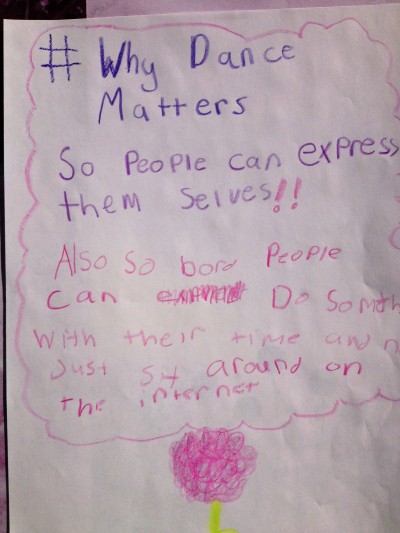 # Why Dance
Matters
So People can express
them selves!!
Also so bord People
can Do Someth
With their time and n
Just sit around on
The internet